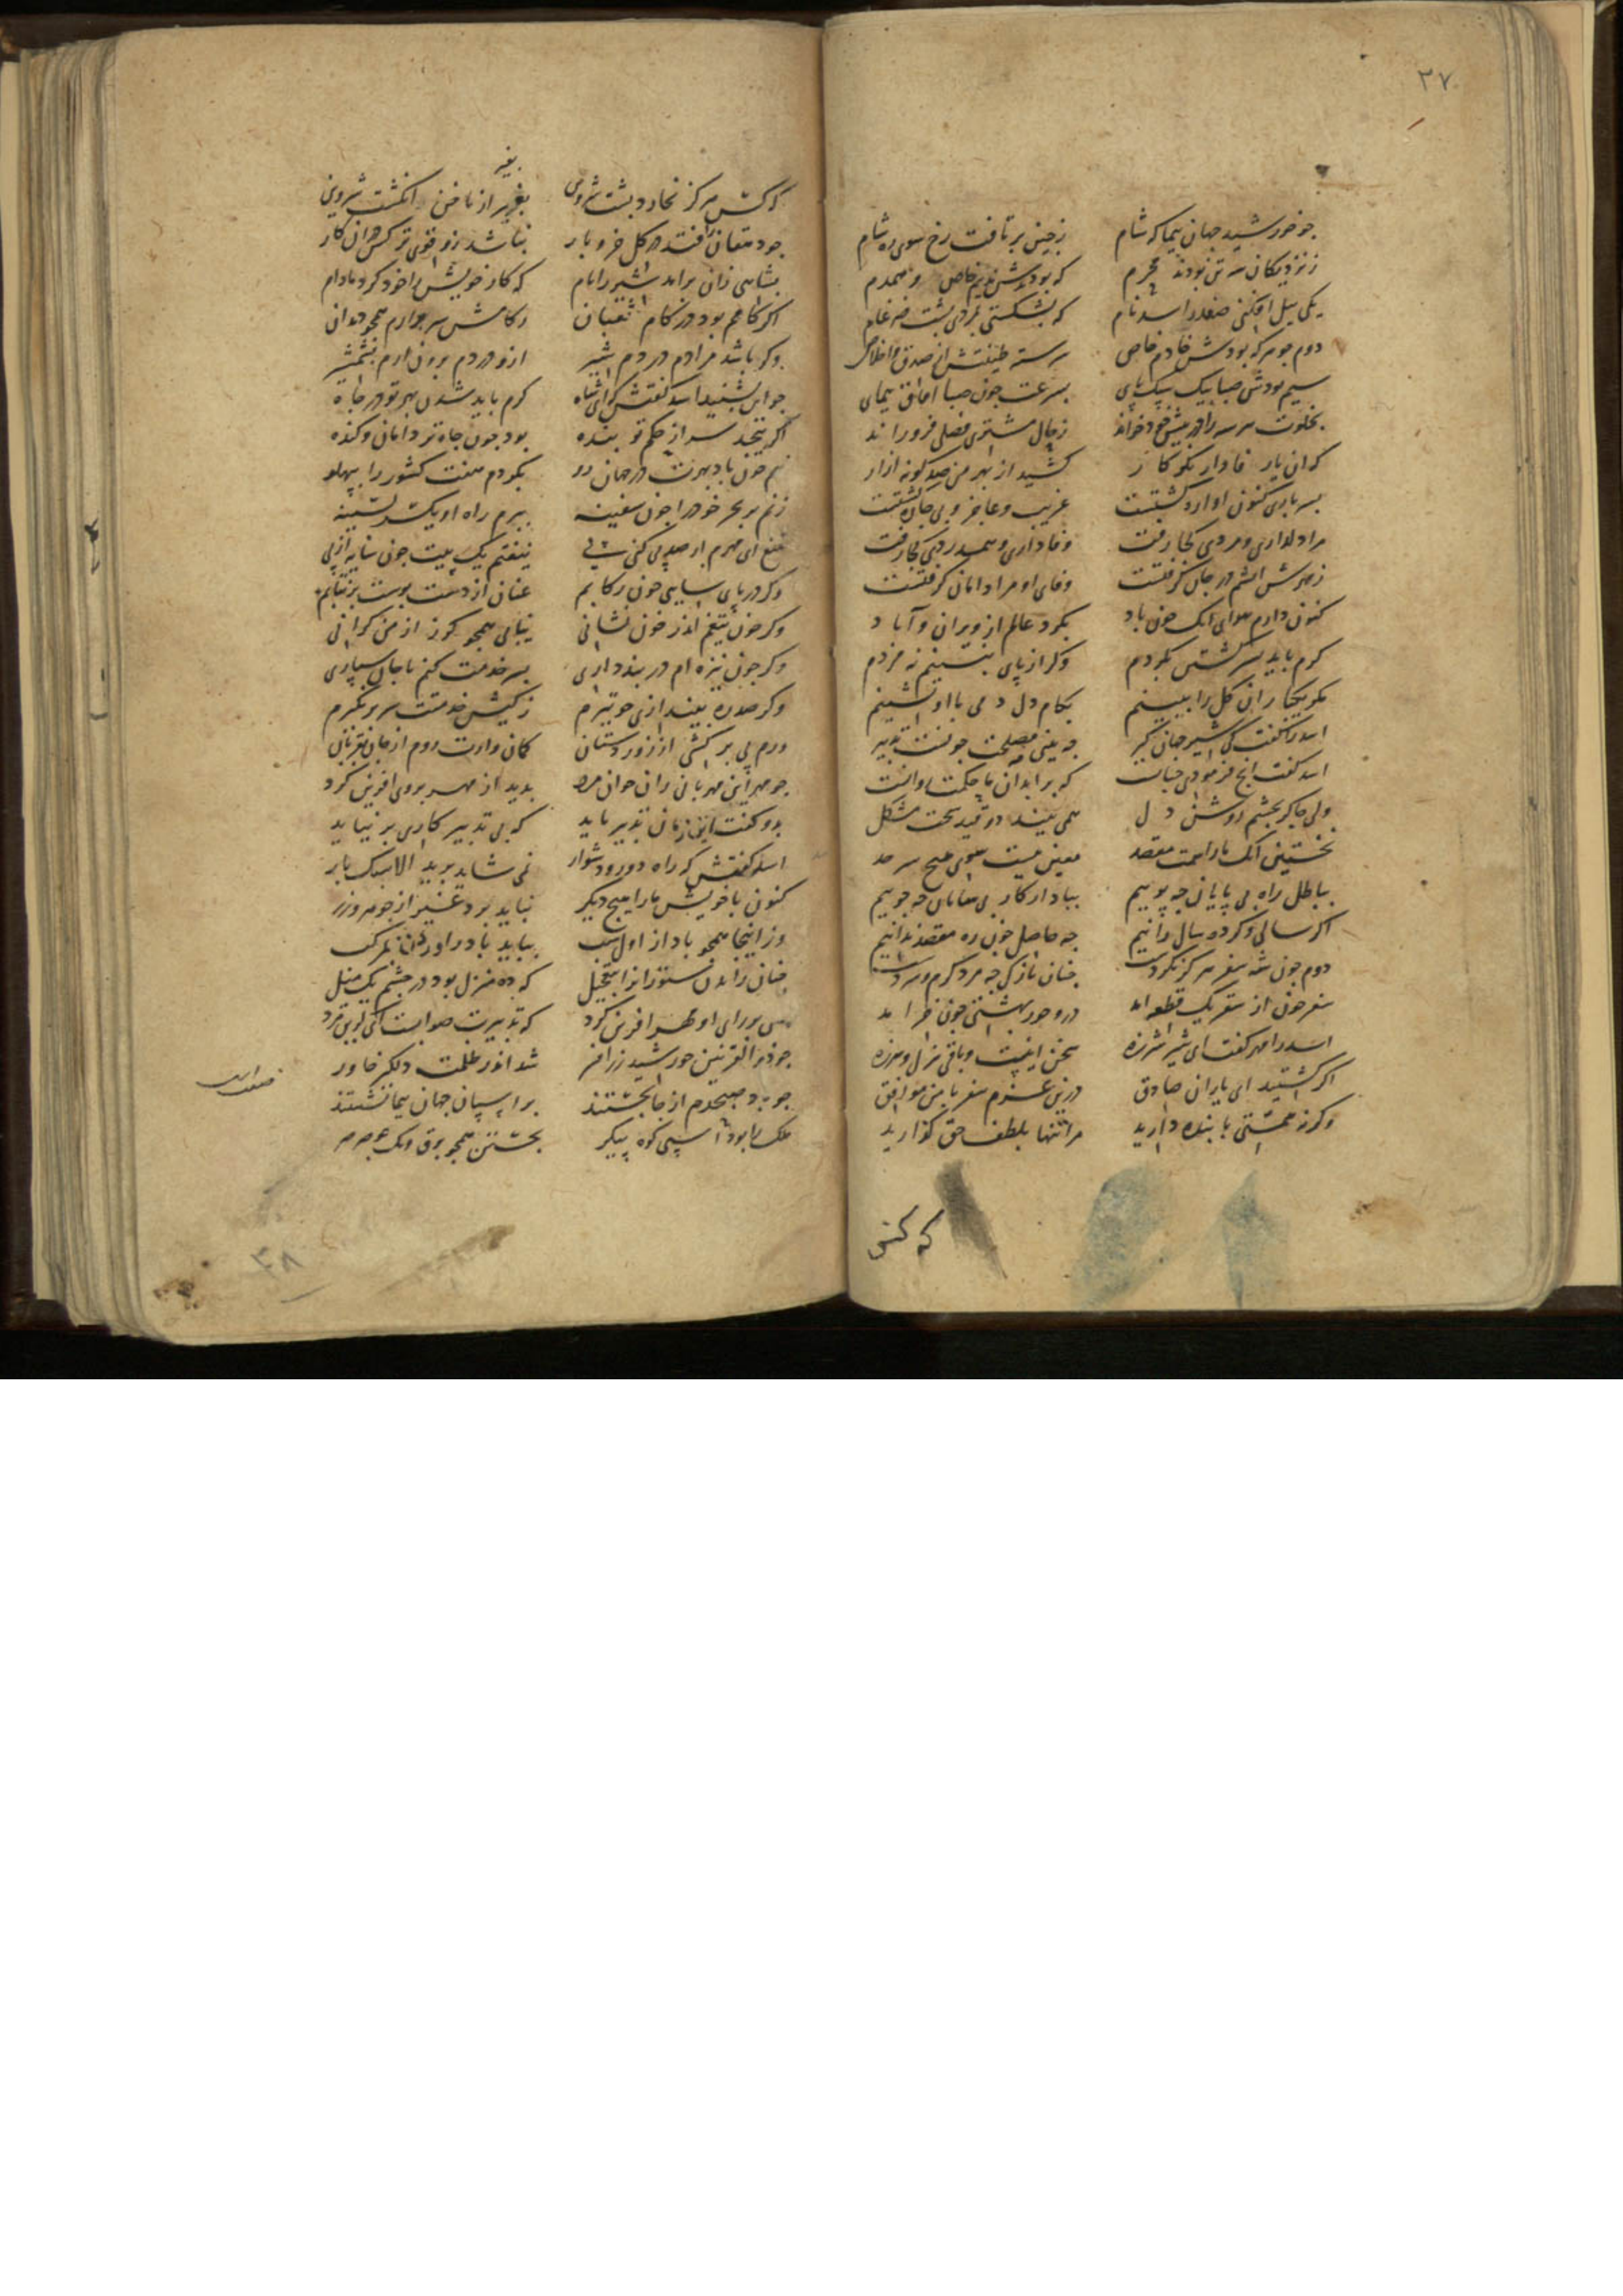 ۳۷
چو خورشید جهان پیما که شام	ز چین برتافت رخ سوی ره شام
ز نزدیکان سه تن بودند محرم	که بودندش ندیم خاص و همدم
یکی پیل افکنی صفدر اسد نام	که بشکستی بمردی پشت ضرغام
دوم جوهر که بودش خادم خاص	سرسته طینتش از صدق و اخلاص
سیم بودش صبا پیک سبک پای	بسرعت چون صبا آفاق پیمای
بخلوت هر سه را در پیش خود خواند	ز حال مشتری فصلی فرو راند
که آن یار وفادار نکو کار	کشید از بهر من صد گونه آزار
بسر باری کنون آواره گشتست	غریب و عاجز و بی چاره گشتست
مرا دلداری و مردی کجا رفت	وفاداری و همدردی کجا رفت
ز مهرش آتشم در جان گرفتست	وفای او مرا دامان گرفتست
کنون دارم هوای آنک چون باد	بگرد عالم از ویران و آباد
گرم باید بسر گشتن بگردم	وگر از پای بنشینم نه مردم
مگر یکبار آن گل را ببینم	بکام دل دمی با او نشینم
اسد را گفت کی شیر جهان گیر	چه بینی مصلحت چونست تدبیر
اسد گفت آنچ فرمودی چنانست	که بر ابدان ما حکمت روانست
ولی چاکر بچشم روشن دل	همی بیند دو قید سخت مشکل
نخستین آنک ما را سمت مقصد	معین نیست سوی هیچ سرحد
بباطل راه بی پایان چه پوییم	بباد ار کار بی سامان چه جوییم
اگر سالی و گر ده سال رانیم	چه حاصل چون ره مقصد ندانیم
دوم چون شه سفر هرگز نکردست	چنان نازکی چه مرد گرم و سردست
سفر چون از سقر یک قطعه آمد	درو حور بهشتی چون خرامد
اسد را مهر گفت ای شیر شرزه	سخن اینست و باقی هزل و هرزه
اگر هستید ای یاران صادق	درین عزم سفر با من موافق
وگرنه همتی با بنده دارید	مرا تنها بلطف حق گذارید
که کس
بغیر
که کس هرگز نخارد پشت شروین	بغیر از ناخن انگشت شروین
چو دهقان را فتد در گل خر و بار	نباشد زو قوی تر کس در آن کار
بشاهی زان برآمد شیر را نام	که کار خویش را خود کرد مادام
اگر کامم بود در کام ثعبان	ز کامش سر برآرم همچو دندان
وگر باشد مرادم در دم شیر	ازو در دم برون آرم بشمشیر
چو این بشنید اسد گفتش که ای شاه	گرم باید شدن بهر تو در چاه
اگر پیچد سر از حکم تو بنده	بود چون چاه تر دامان و کنده
نهم چون باد بهرت در جهان رو	بگردم هفت کشور را بپهلو
زنم بر بحر خود را چون سفینه	ببرم راه او یکسر بسینه
بتیغ ای مهرم ار صد پی کنی پی	نیفتم یک پیت چون سایه از پی
وگر در پای سایی چون رکابم	عنان از دست بوست برنتابم
وگر چون تیغم اندر خون نشانی	نیابی همچو گرز از من گرانی
وگر چون نیزه ام در بند داری	بسر خدمت کنم با جان سپاری
وگر صد ره بیندازی چو تیرم	ز کیش خدمتت سر برنگیرم
ورم پی برکشی از زور دستان	کمان وارت دوم از جان بقربان
چو مهر این مهربانی زان جوان مرد	بدید از مهر بروی آفرین کرد
بدو گفت این زمان تدبیر باید	که بی تدبیر کاری برنیاید
اسد گفتش که راه دور و دشوار	نمی شاید برید الا سبک بار
کنون با خویش ما را هیچ دیگر	نباید برد غیر از جوهر و زر
وز اینجا همچو باد از اول شب	بباید باد را ور راند مرکب
چنان راندن ستوران را بتعجیل	که ده منزل بود در چشم یک میل
بسی بر رای او مهر آفرین کرد	که تدبیرت صوابست ای گزین مرد
چو ذو القرنین خورشید زر افسر	شد اندر ظلمت دلگیر خاور
چو برد صبحدم از جا بجستند	بر اسپان جهان پیما نشستند
ملک را بود اسپی کوه پیکر	بجستن همچو برق و تک چو صرصر
صفت اسب
۳۸